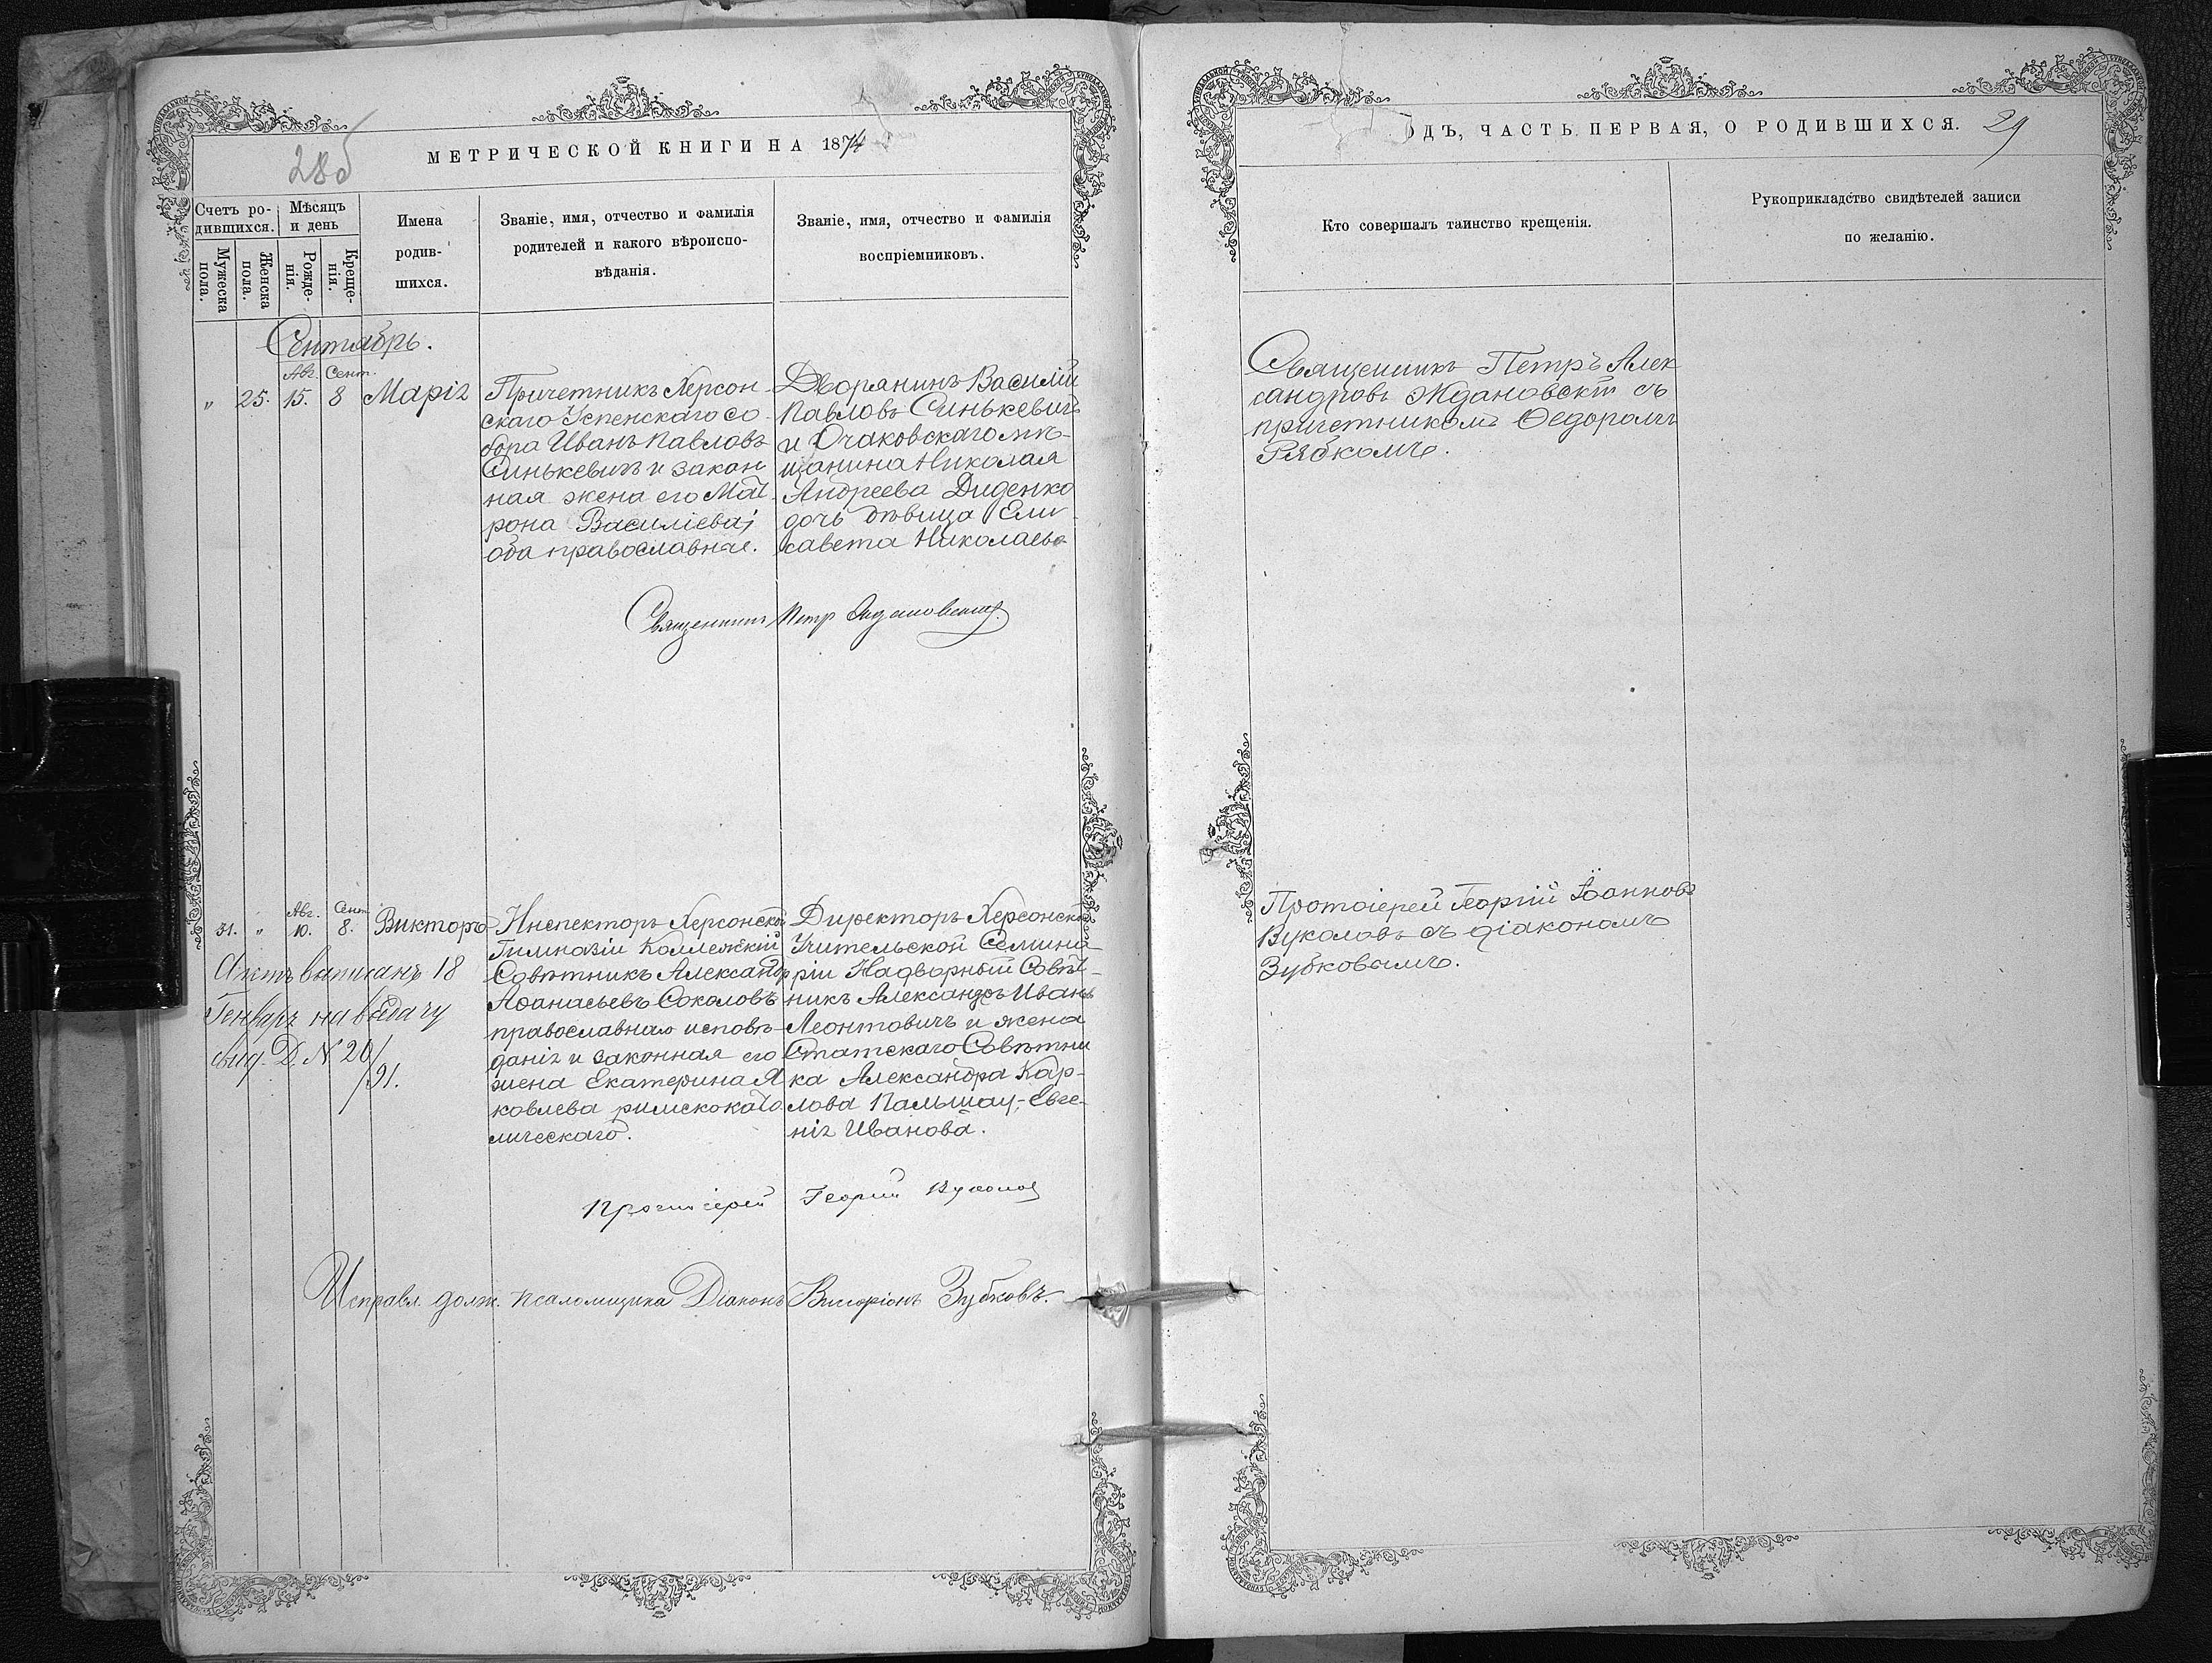 28б
МЕТРИЧЕСКОЙ КНИГИ НА 1874
Счетъ ро-
дившихся.
Мѣсяцъ
и день
Мужеска
пола.
Женска
пола.
Рожде-
нія.
Креще-
нія.
Имена
родив-
шихся.
Званіе, имя, отчество и фамилія
родителей и какого вѣроиспо-
вѣданія.
Званіе, имя, отчество и фамилія
воспріемниковъ.
Сентябрь.
Авг. Сент.
" 25. 15. 8 Марія
Причетникъ Херсон-
скаго Успенскаго со-
бора Иванъ Павловъ
Синькевичъ и закон
ная жена его Мат-
рона Василіева;
оба православные.
Дворянинъ Василій
Павловъ Синькевичъ
и Очаковскаго мѣ-
щанина Николая
Андреева Диденко
дочь дѣвица Ели-
савета Николаева
Священникъ Петр Ждановскій
Авг. Сент.
31. " 10. 8. Викторъ
Актъ выписанъ 18
Генваря на выдачу
свид. Д. № 20/91.
Инспекторъ Херсонской
Гимназіи Коллежскій
Совѣтникъ Александр
Аѳанасьевъ Соколовъ
православнаго исповѣ-
данія и законная его
жена Екатерина Я
ковлева римскокато
лическаго.
Директоръ Херсонской
Учительской Семина-
ріи Надворный Совѣт-
никъ Александръ Иванов
Леонтовичъ и жена
Статскаго Совѣтни
ка Александра Кар-
лова Пальшау, Евге-
нія Иванова.
Протоіерей Георгій Вуколов
Исправл. долж. псаломщика Діаконъ Виссаріонъ Зубковъ.
ОДЪ, ЧАСТЬ ПЕРВАЯ, О РОДИВШИХСЯ. 29
Кто совершалъ таинство крещенія.
Рукоприкладство свидѣтелей записи
по желанію.
Священникъ Петръ Алек
сандровъ Ждановскій съ
причетникомъ Ѳедоромъ
Рябкомъ.
Протоіерей Георгій Іоанновъ
Вуколовъ съ діакономъ
Зубковымъ.